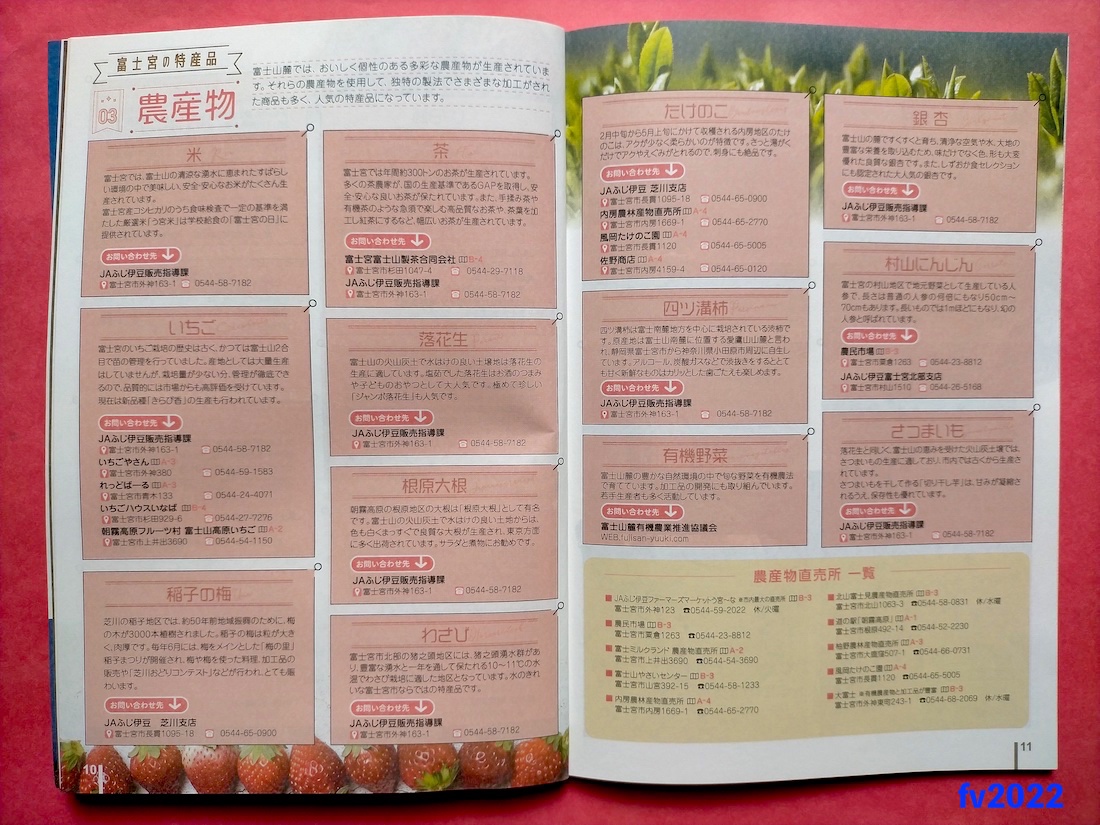 富士宮の特産品
03
農産物
富士山麓では、おいしく個性のある多彩な農産物が生産されていま
す。それらの農産物を使用して、独特の製法でさまざまな加工がされ
た商品も多く、人気の特産品になっています。
米
富士宮では、富士山の清涼な湧水に恵まれたすばらし
い環境の中で美味しい、安全・安心なお米がたくさん生
産されています。
富士宮産コシヒカリのうち食味検査で一定の基準を満
たした厳選米「う宮米」は学校給食の「富士宮の日」に
提供されています。
お問い合わせ先
JAふじ伊豆販売指導課
富士宮市外神163-1 0544-58-7182
いちご
富士宮のいちご栽培の歴史は古く、かつては富士山2合
目で苗の管理を行っていました。産地としては大量生産
はしていませんが、栽培量が少ない分、管理が徹底でき
るので、品質的には市場からも高評価を受けています。
現在は新品種「きらぴ香」の生産も行われています。
お問い合わせ先
JAふじ伊豆販売指導課
富士宮市外神163-1 0544-58-7182
いちごやさん A-3
富士宮市外神380 0544-59-1583
れっどぱーる A-3
富士宮市青木133 0544-24-4071
いちごハウスいなば B-4
富士宮市杉田929-6 0544-27-7276
朝霧高原フルーツ村 富士山高原いちご A-2
富士宮市上井出3690 0544-54-1150
稲子の梅
芝川の稲子地区では、約50年前地域振興のために、梅
の木が3000本植樹されました。稲子の梅は粒が大き
く、肉厚です。毎年6月には、梅をメインとした「梅の里」
稲子まつりが開催され、梅や梅を使った料理、加工品の
販売や「芝川おどりコンテスト」などが行われ、とても賑
わいます。
お問い合わせ先
JAふじ伊豆 芝川支店
富士宮市長貫1095-18 0544-65-0900
茶
富士宮では年間約300トンのお茶が生産されています。
多くの茶農家が、国の生産基準であるGAPを取得し、安
全・安心な良いお茶が保たれています。また、手揉み茶や
有機茶のような急須で楽しむ高品質なお茶や、茶葉を加
工し紅茶にするなど、幅広いお茶が生産されています。
お問い合わせ先
富士宮富士山製茶合同会社 B-4
富士宮市杉田1047-4 0544-29-7118
JAふじ伊豆販売指導課
富士宮市外神163-1 0544-58-7182
落花生
富士山の火山灰土で水はけの良い土壌地は落花生の
生産に適しています。塩茹でした落花生はお酒のつまみ
や子どものおやつとして大人気です。極めて珍しい
「ジャンボ落花生」も人気です。
お問い合わせ先
JAふじ伊豆販売指導課
富士宮市外神163-1 0544-58-7182
根原大根
朝霧高原の根原地区の大根は「根原大根」として有名
です。富士山の火山灰土で水はけの良い土地からは、
色も白くまっすぐで良質な大根が生産され、東京方面
に多く出荷されています。サラダと煮物にお勧めです。
お問い合わせ先
JAふじ伊豆販売指導課
富士宮市外神163-1 0544-58-7182
わさび
富士宮市北部の猪之頭地区には、猪之頭湧水群があ
り、豊富な湧水と一年を通して保たれる10〜11℃の水
温でわさび栽培に適した地区となっています。水のきれ
いな富士宮市ならではの特産品です。
お問い合わせ先
JAふじ伊豆販売指導課
富士宮市外神163-1 0544-58-7182
10
たけのこ
2月中旬から5月上旬にかけて収穫される内房地区のたけ
のこは、アクが少なく柔らかいのが特徴です。さっと湯がく
だけでアクやえぐみがとれるので、刺身にも絶品です。
お問い合わせ先
JAふじ伊豆 芝川支店
富士宮市長貫1095-18 0544-65-0900
内房農林産物直売所 A-4
富士宮市内房1669-1 0544-65-2770
風岡たけのこ園 A-4
富士宮市長貫1120 0544-65-5005
佐野商店 A-4
富士宮市内房4159-4 0544-65-0120
四ツ溝柿
四ツ溝柿は富士南麓地方を中心に栽培されている渋柿で
す。原産地は富士南麓に位置する愛鷹山山麓と言わ
れ、静岡県富士宮市から神奈川県小田原市周辺に自生し
ています。アルコール、炭酸ガスなどで渋抜きをするととて
も甘く新鮮なものはカリッとした歯ごたえも楽しめます。
お問い合わせ先
JAふじ伊豆販売指導課
富士宮市外神163-1 0544-58-7182
有機野菜
富士山麓の豊かな自然環境の中で旬な野菜を有機農法
で育てています。加工品の開発にも取り組んでいます。
若手生産者も多く活動しています。
お問い合わせ先
富士山麓有機農業推進協議会
WEB.fujisan-yuuki.com
銀杏
富士山の麓ですくすくと育ち、清浄な空気や水、大地の
豊富な栄養を取り込むため、味だけでなく色、形も大変
優れた良質な銀杏です。また、しずおか食セレクション
にも認定された大人気の銀杏です。
お問い合わせ先
JAふじ伊豆販売指導課
富士宮市外神163-1 0544-58-7182
村山にんじん
富士宮の村山地区で地元野菜として生産している人
参で、長さは普通の人参の何倍にもなり50cm〜
70cmもあります。長いものでは1mほどにもなり、幻の
人参と呼ばれています。
お問い合わせ先
農民市場 B-3
富士宮市粟倉1263 0544-23-8812
JAふじ伊豆富士宮北部支店
富士宮市村山1510 0544-26-5168
さつまいも
落花生と同じく、富士山の恵みを受けた火山灰土壌では、
さつまいもの生産に適しており、市内では古くから生産さ
れています。
さつまいもを干して作る「切り干し芋」は、甘みが凝縮さ
れるうえ、保存性も優れています。
お問い合わせ先
JAふじ伊豆販売指導課
富士宮市外神163-1 0544-58-7182
農産物直売所 一覧
■JAふじ伊豆ファーマーズマーケットう宮〜な ※市内最大の直売所 B-3
富士宮市外神123 ☎0544-59-2022 休/火曜
■農民市場 B-3
富士宮市粟倉1263 ☎0544-23-8812
■富士ミルクランド 農産物直売所 A-2
富士宮市上井出3690 ☎0544-54-3690
■富士山やさいセンター B-3
富士宮市山宮392-15 ☎0544-58-1233
■内房農林産物直売所 A-4
富士宮市内房1669-1 ☎0544-65-2770
■北山富士見農産物直売所 B-3
富士宮市北山1063-3 ☎0544-58-0831 休/水曜
■道の駅「朝霧高原」 A-1
富士宮市根原492-14 ☎0544-52-2230
■柚野農林産物直売所 A-3
富士宮市大鹿窪507-1 ☎0544-66-0731
■風岡たけのこ園 A-4
富士宮市長貫1120 ☎0544-65-5005
■大富士 ※有機農産物と加工品が豊富 B-3
富士宮市外神東町243-1 ☎0544-68-2069 休/水曜
11
fv2022